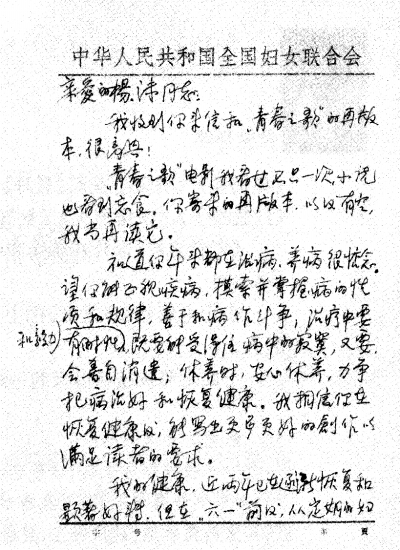 中华人民共和国全国妇女联合会
亲爱的楊沫同志：
我收到你来信和“青春之歌”的再版
本，很高兴！
“青春之歌”电影我看过不只一次，小说
也看到忘食。你寄来的再版本，以后有空，
我当再读它。
知道你年来都在治病、养病很惦念。
望你正视疾病，摸索并掌握病的性
质和规律，善于和病作斗争，治疗中要
有耐性和毅力，既要耐受得住病中的寂寞，又要
会善自消遣；休养时，安心休养，力争
把病治好和恢复健康。我相信你在
恢复健康后，能写出更多更好的創作以
滿足读者的要求。
我的健康，近两年已在逐渐恢复和
顯著好轉，但在“六一”前后，从定期的妇